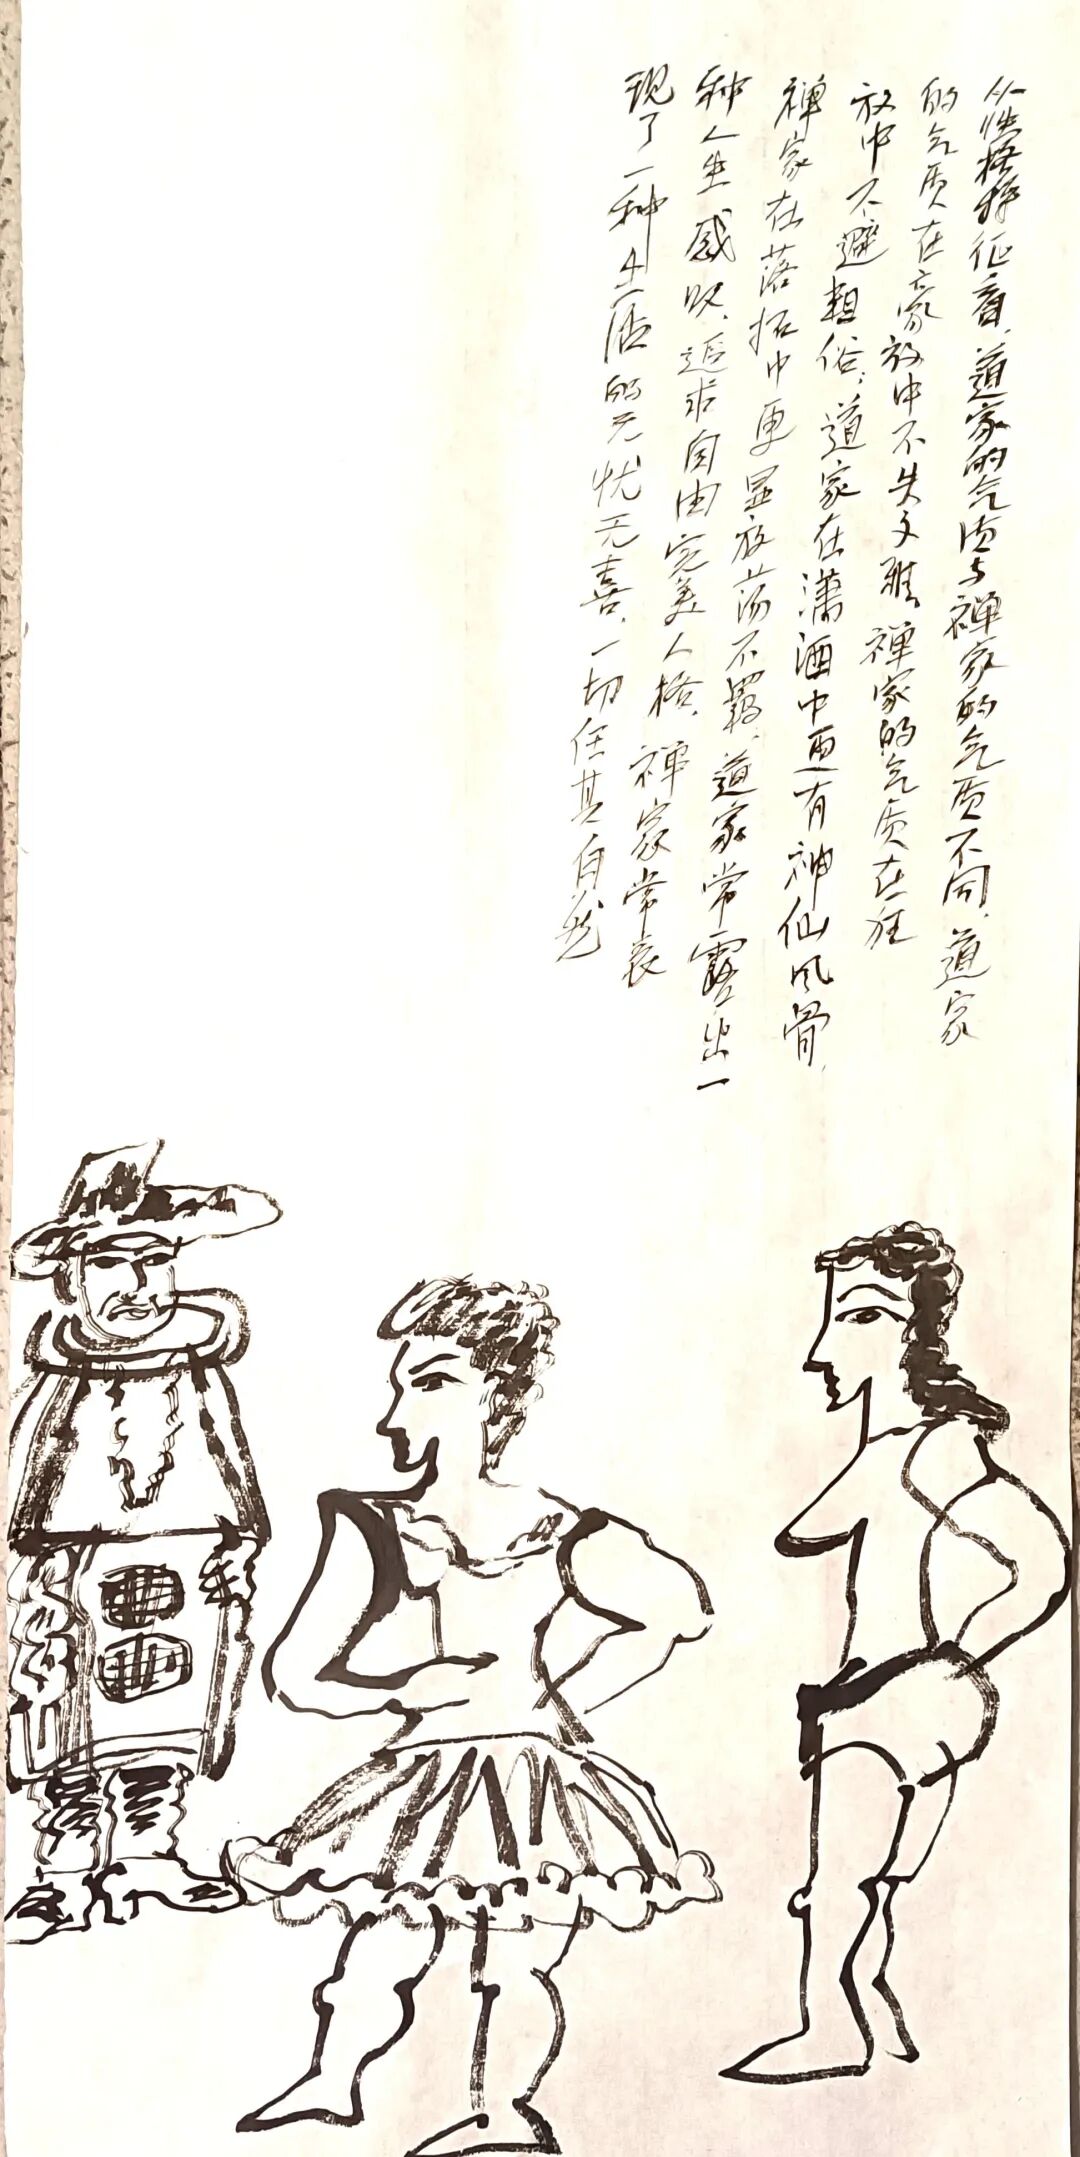 从性格特征看，道家的气质与禅家的气质不同，道家
的气质在豪放中不失文雅，禅家的气质在狂
放中不避粗俗；道家在潇洒中更有神仙风骨，
禅家在落拓中更显放荡不羁，道家常露出一
种人生感叹，追求自由完美人格，禅家常表
现了一种生活的无忧无喜，一切任其自然